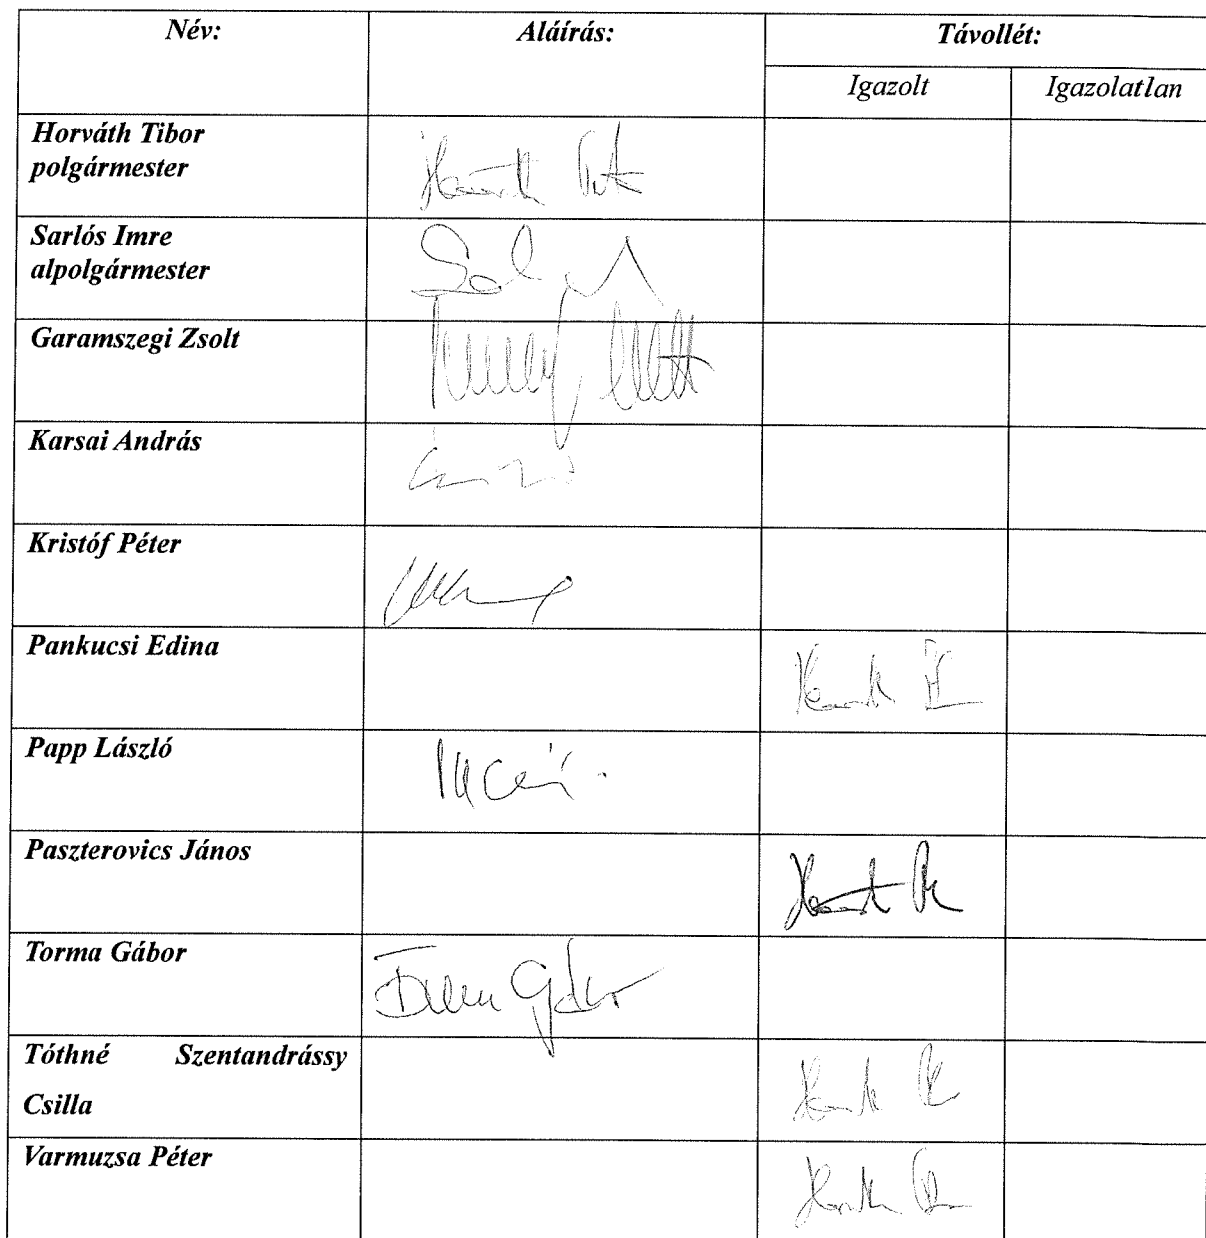 Név: Aláírás: Távollét:
Igazolt Igazolatlan
Horváth Tibor
polgármester
Sarlós Imre
alpolgármester
Garamszegi Zsolt
Karsai András
Kristóf Péter
Pankucsi Edina
Papp László
Paszterovics János
Torma Gábor
Tóthné Szentandrássy
Csilla
Varmuzsa Péter